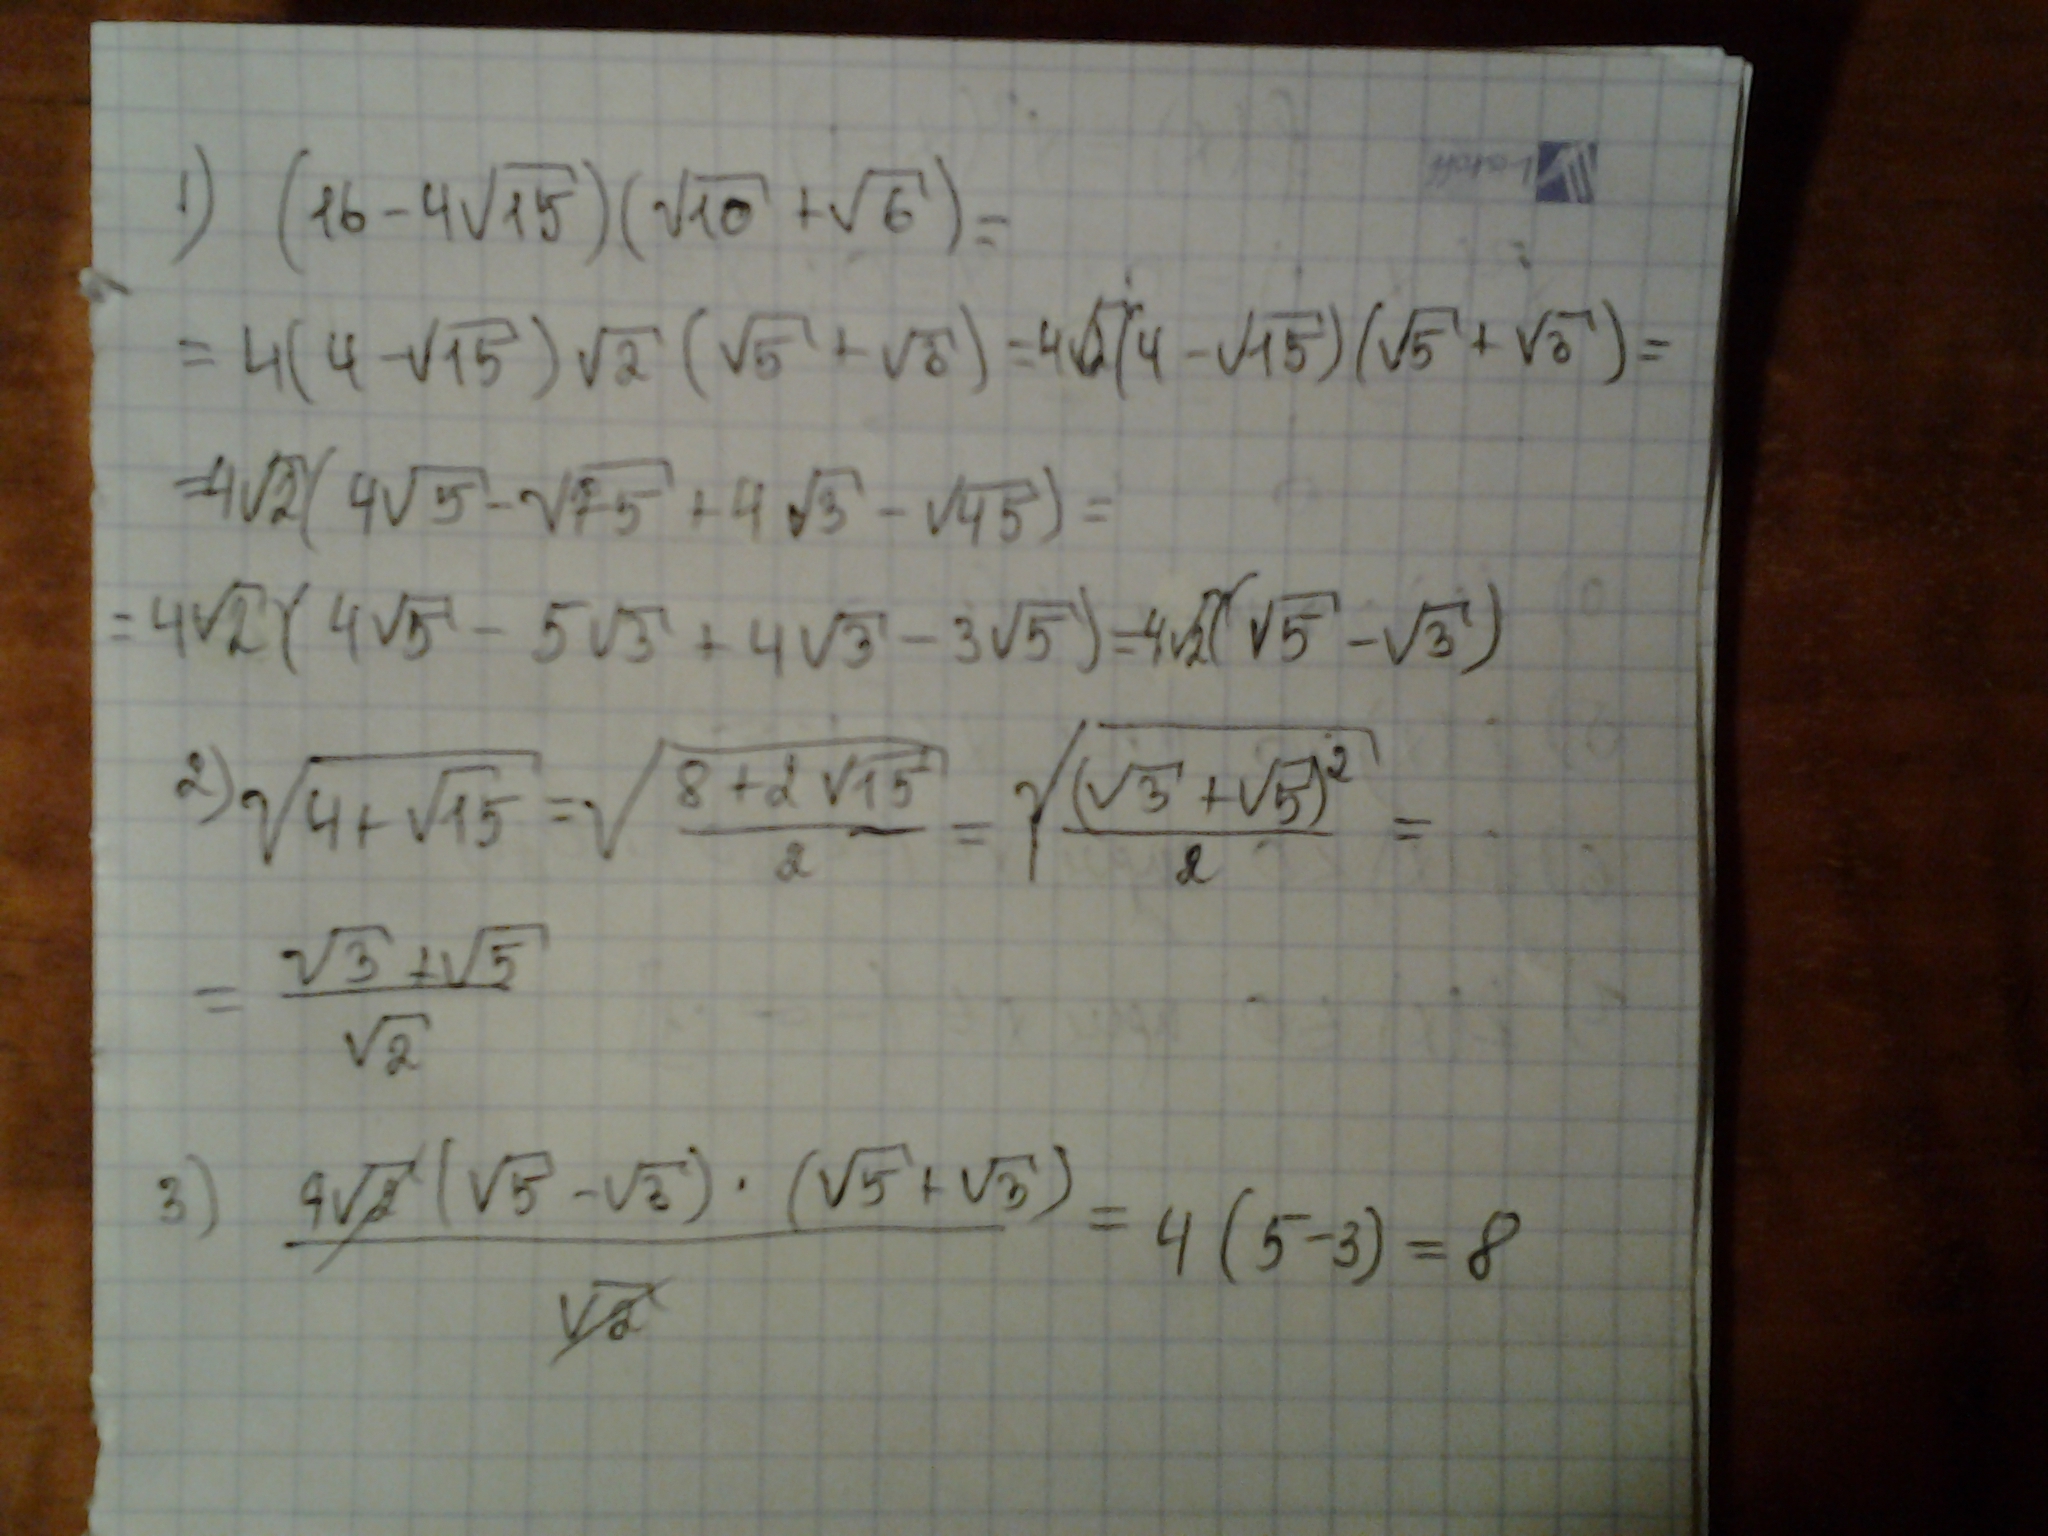 1) (16-4√15)(√10+√6)=
=4(4-√15)√2(√5+√3)=4√2(4-√15)(√5+√3)=
=4√2(4√5-√75+4√3-√45)=
=4√2(4√5-5√3+4√3-3√5)=4√2(√5-√3)
2) √(4+√15)=√((8+2√15)/2)=√((√3+√5)²/2)=
=(√3+√5)/√2
3) (4√2(√5-√3)·(√5+√3))/√2=4(5-3)=8